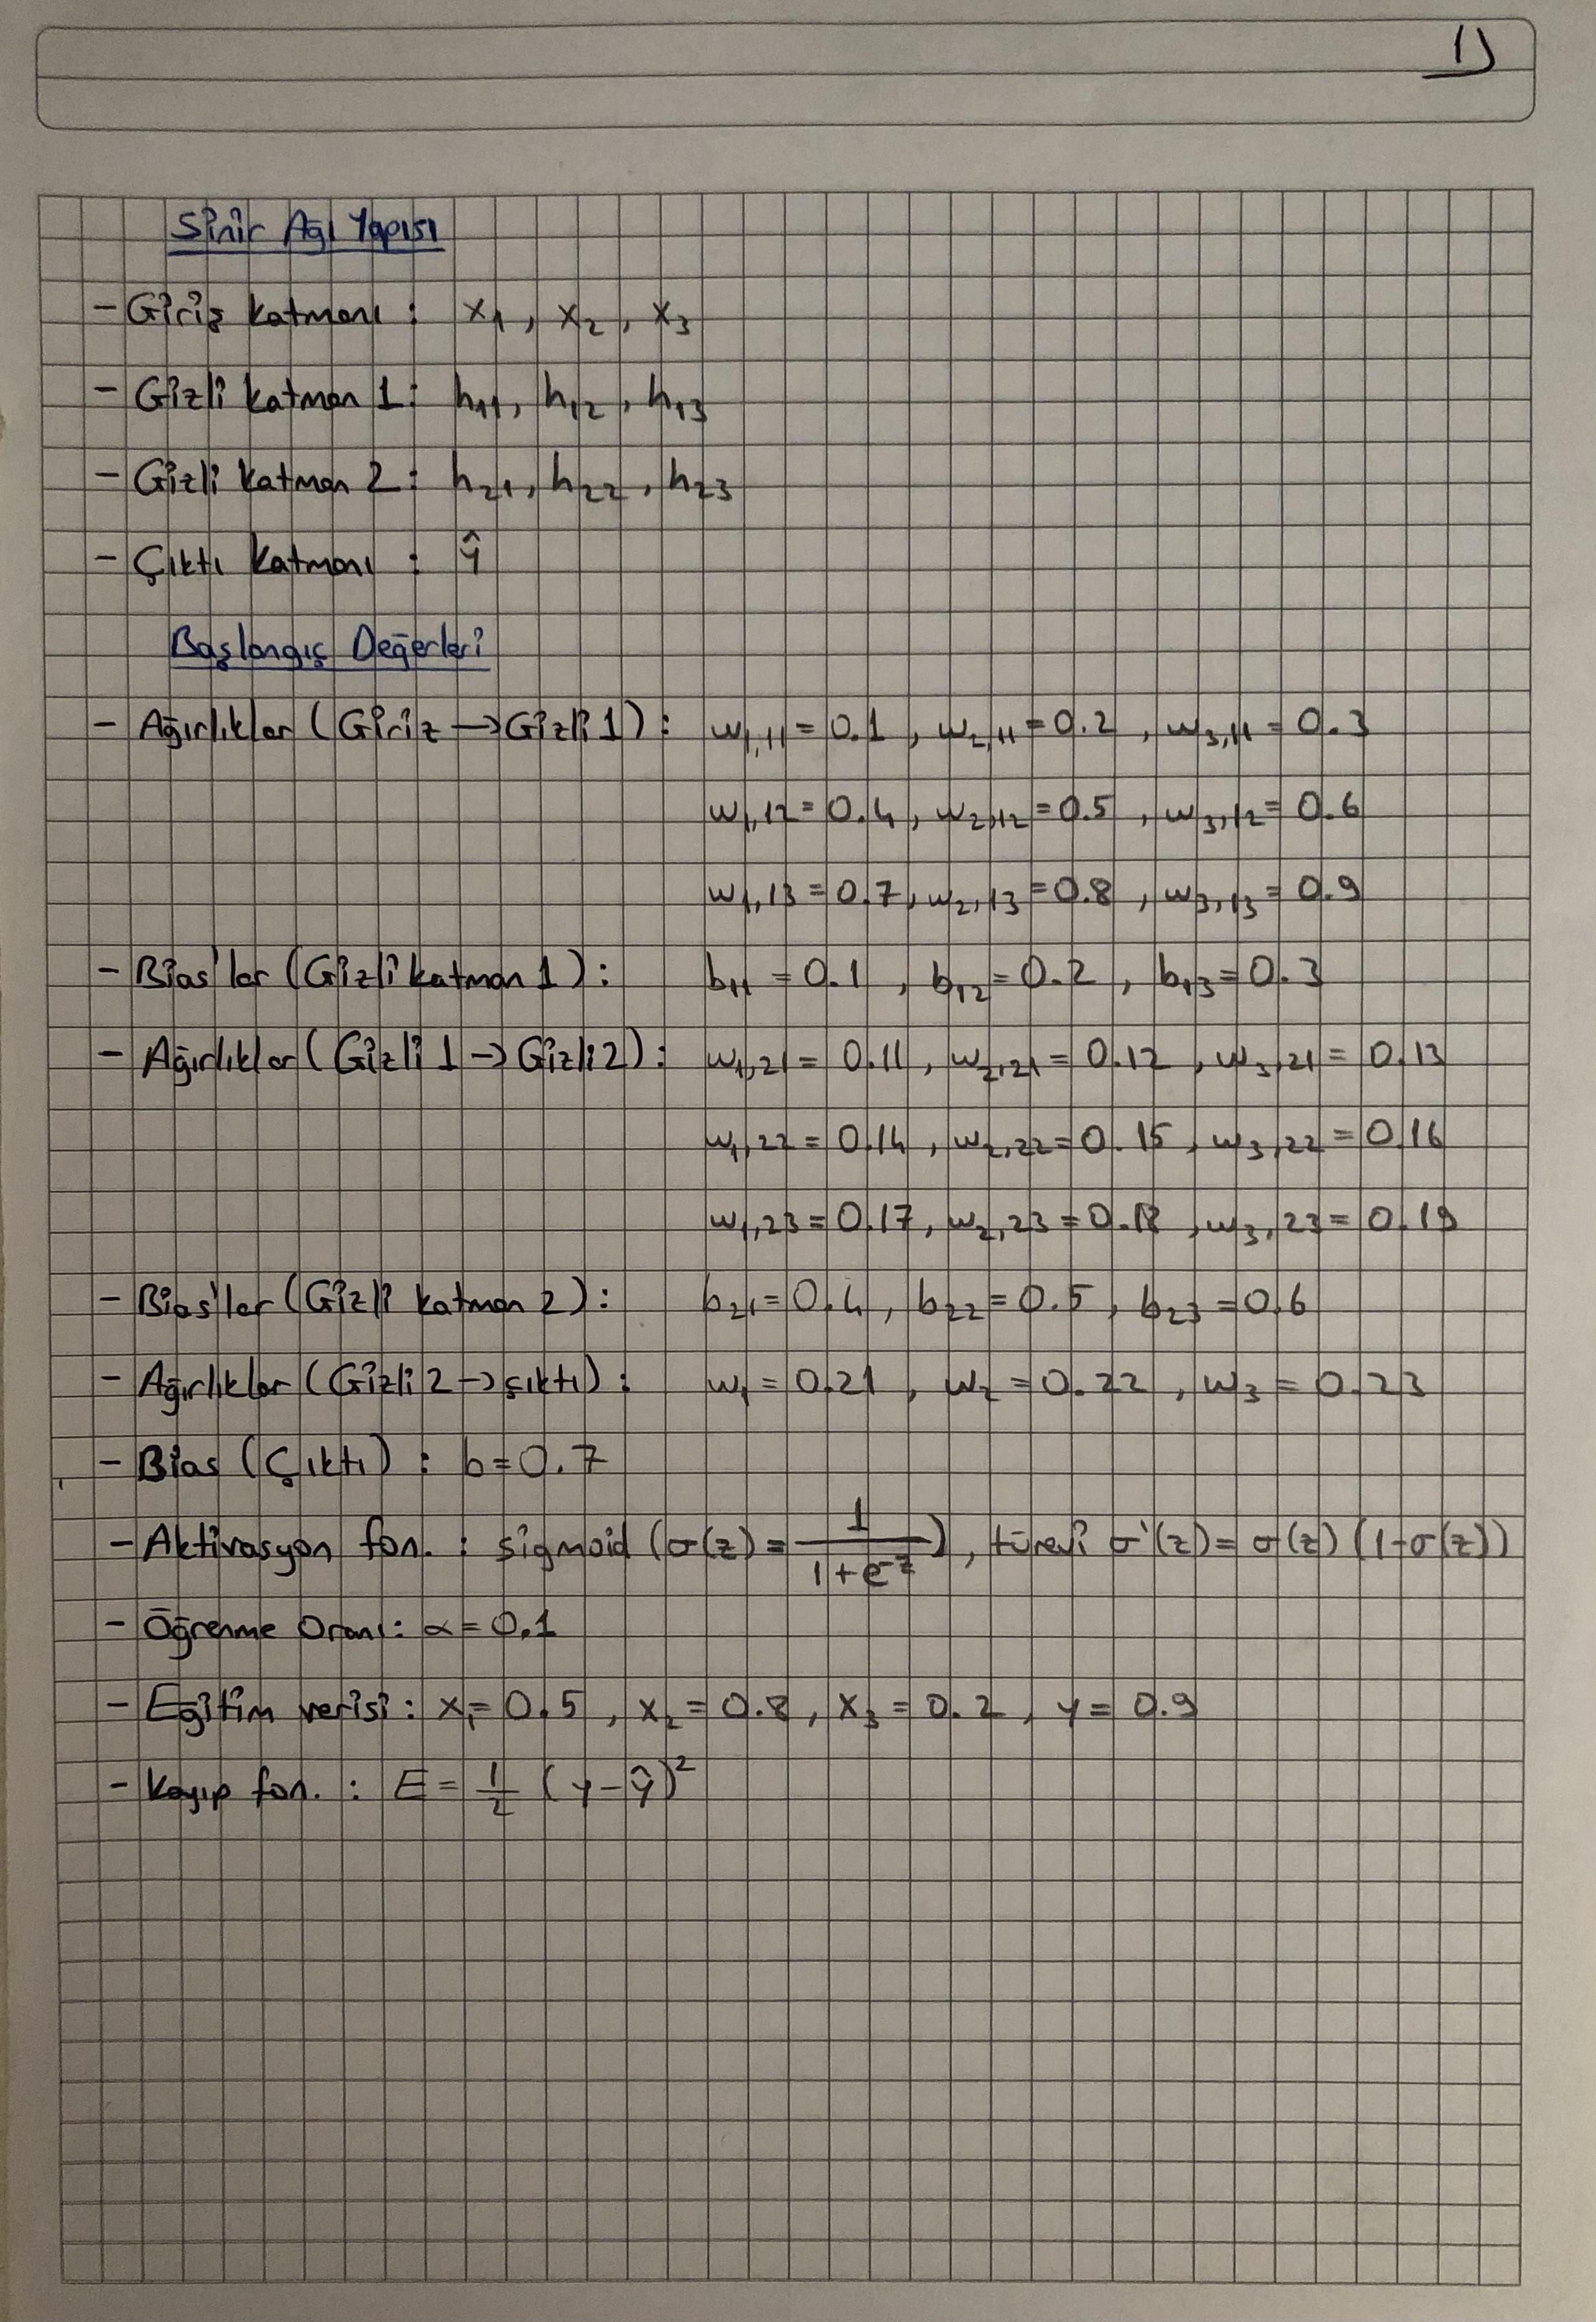 1)
Sinir Ağı Yapısı
- Giriş katmanı : x₁, x₂, x₃
- Gizli katman 1: h₁₁, h₁₂, h₁₃
- Gizli katman 2: h₂₁, h₂₂, h₂₃
- Çıktı katmanı : ŷ
Başlangıç Değerleri
- Ağırlıklar (Giriz → Gizli 1): w₁,₁₁ = 0.1, w₂,₁₁ = 0.2, w₃,₁₁ = 0.3
w₁,₁₂ = 0.4, w₂,₁₂ = 0.5, w₃,₁₂ = 0.6
w₁,₁₃ = 0.7, w₂,₁₃ = 0.8, w₃,₁₃ = 0.9
- Bias'lar (Gizli katman 1): b₁₁ = 0.1, b₁₂ = 0.2, b₁₃ = 0.3
- Ağırlıklar (Gizli 1 → Gizli 2): w₁,₂₁ = 0.11, w₂,₂₁ = 0.12, w₃,₂₁ = 0.13
w₁,₂₂ = 0.14, w₂,₂₂ = 0.15, w₃,₂₂ = 0.16
w₁,₂₃ = 0.17, w₂,₂₃ = 0.18, w₃,₂₃ = 0.19
- Bias'lar (Gizli katman 2): b₂₁ = 0.4, b₂₂ = 0.5, b₂₃ = 0.6
- Ağırlıklar (Gizli 2 → çıktı): w₁ = 0.21, w₂ = 0.22, w₃ = 0.23
- Bias (Çıktı) : b = 0.7
- Aktivasyon fon. : sigmoid (σ(z) = 1/(1+e⁻ᶻ)), türevi σ'(z) = σ(z) (1-σ(z))
- Öğrenme Oranı: α = 0.1
- Eğitim verisi : x₁ = 0.5, x₂ = 0.8, x₃ = 0.2, y = 0.9
- Kayıp fon. : E = 1/2 (y-ŷ)²